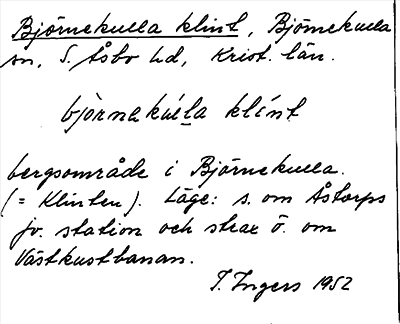 Björnekulla klint, Björnekulla
sn, S. Åsbo hd, Krist. län.
bjòrnekúlla klínt
bergsområde i Björnekulla.
(= Klinten). Läge: s. om Åstorps
jv. station och strax ö. om
Västkustbanan.
I. Ingers 1952